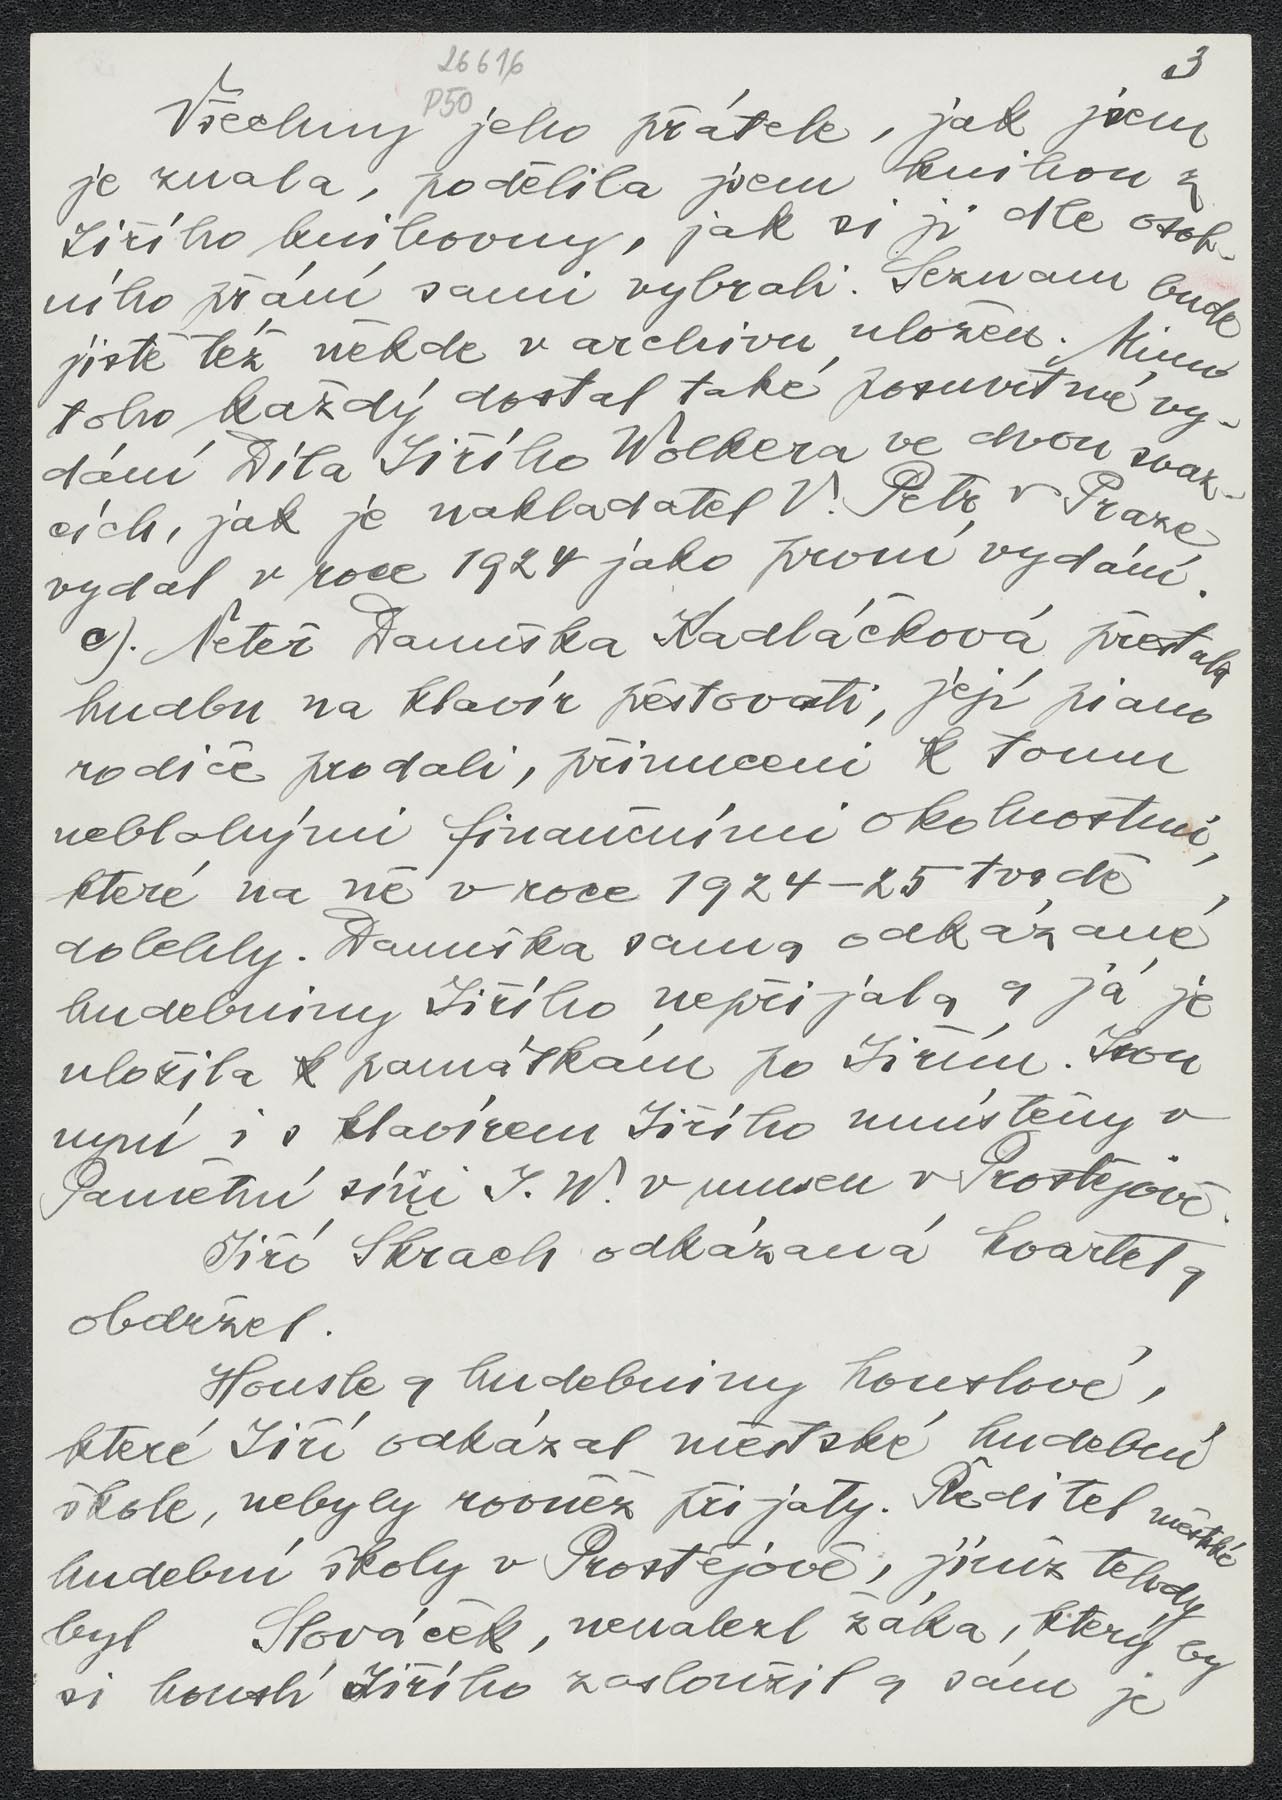 26616
P50
3
Všechny jeho přátele, jak jsem
je znala, podělila jsem knihou z
Jiřího knihovny, jak si ji dle osob-
ního přání sami vybrali. Seznam bude
jistě též někde v archivu uložen. Mimo
toho každý dostal také posmrtné vy-
dání Díla Jiřího Wolkera ve dvou svaz-
cích, jak je nakladatel V. Petr v Praze
vydal v roce 1924 jako první vydání.
c). Neteř Danuška Kadláčková přestala
hudbu na klavír pěstovati, její piano
rodiče prodali, přinuceni k tomu
neblahými finančními okolnostmi,
které na ně v roce 1924–25 tvrdě
dolehly. Danuška sama odkázané
hudebniny Jiřího nepřijala a já je
uložila k památkám po Jiřím. Jsou
nyní i s klavírem Jiřího umístěny v
Pamětní síni J. W. v museu v Prostějově.
Jiří Skrach odkázaná kvarteta
obdržel.
Housle a hudebniny houslové,
které Jiří odkázal městské hudební
škole, nebyly rovněž přijaty. Ředitel městské
hudební školy v Prostějově, jímž tehdy
byl Slováček, nenalezl žáka, který by
si houslí Jiřího zasloužil a sám je